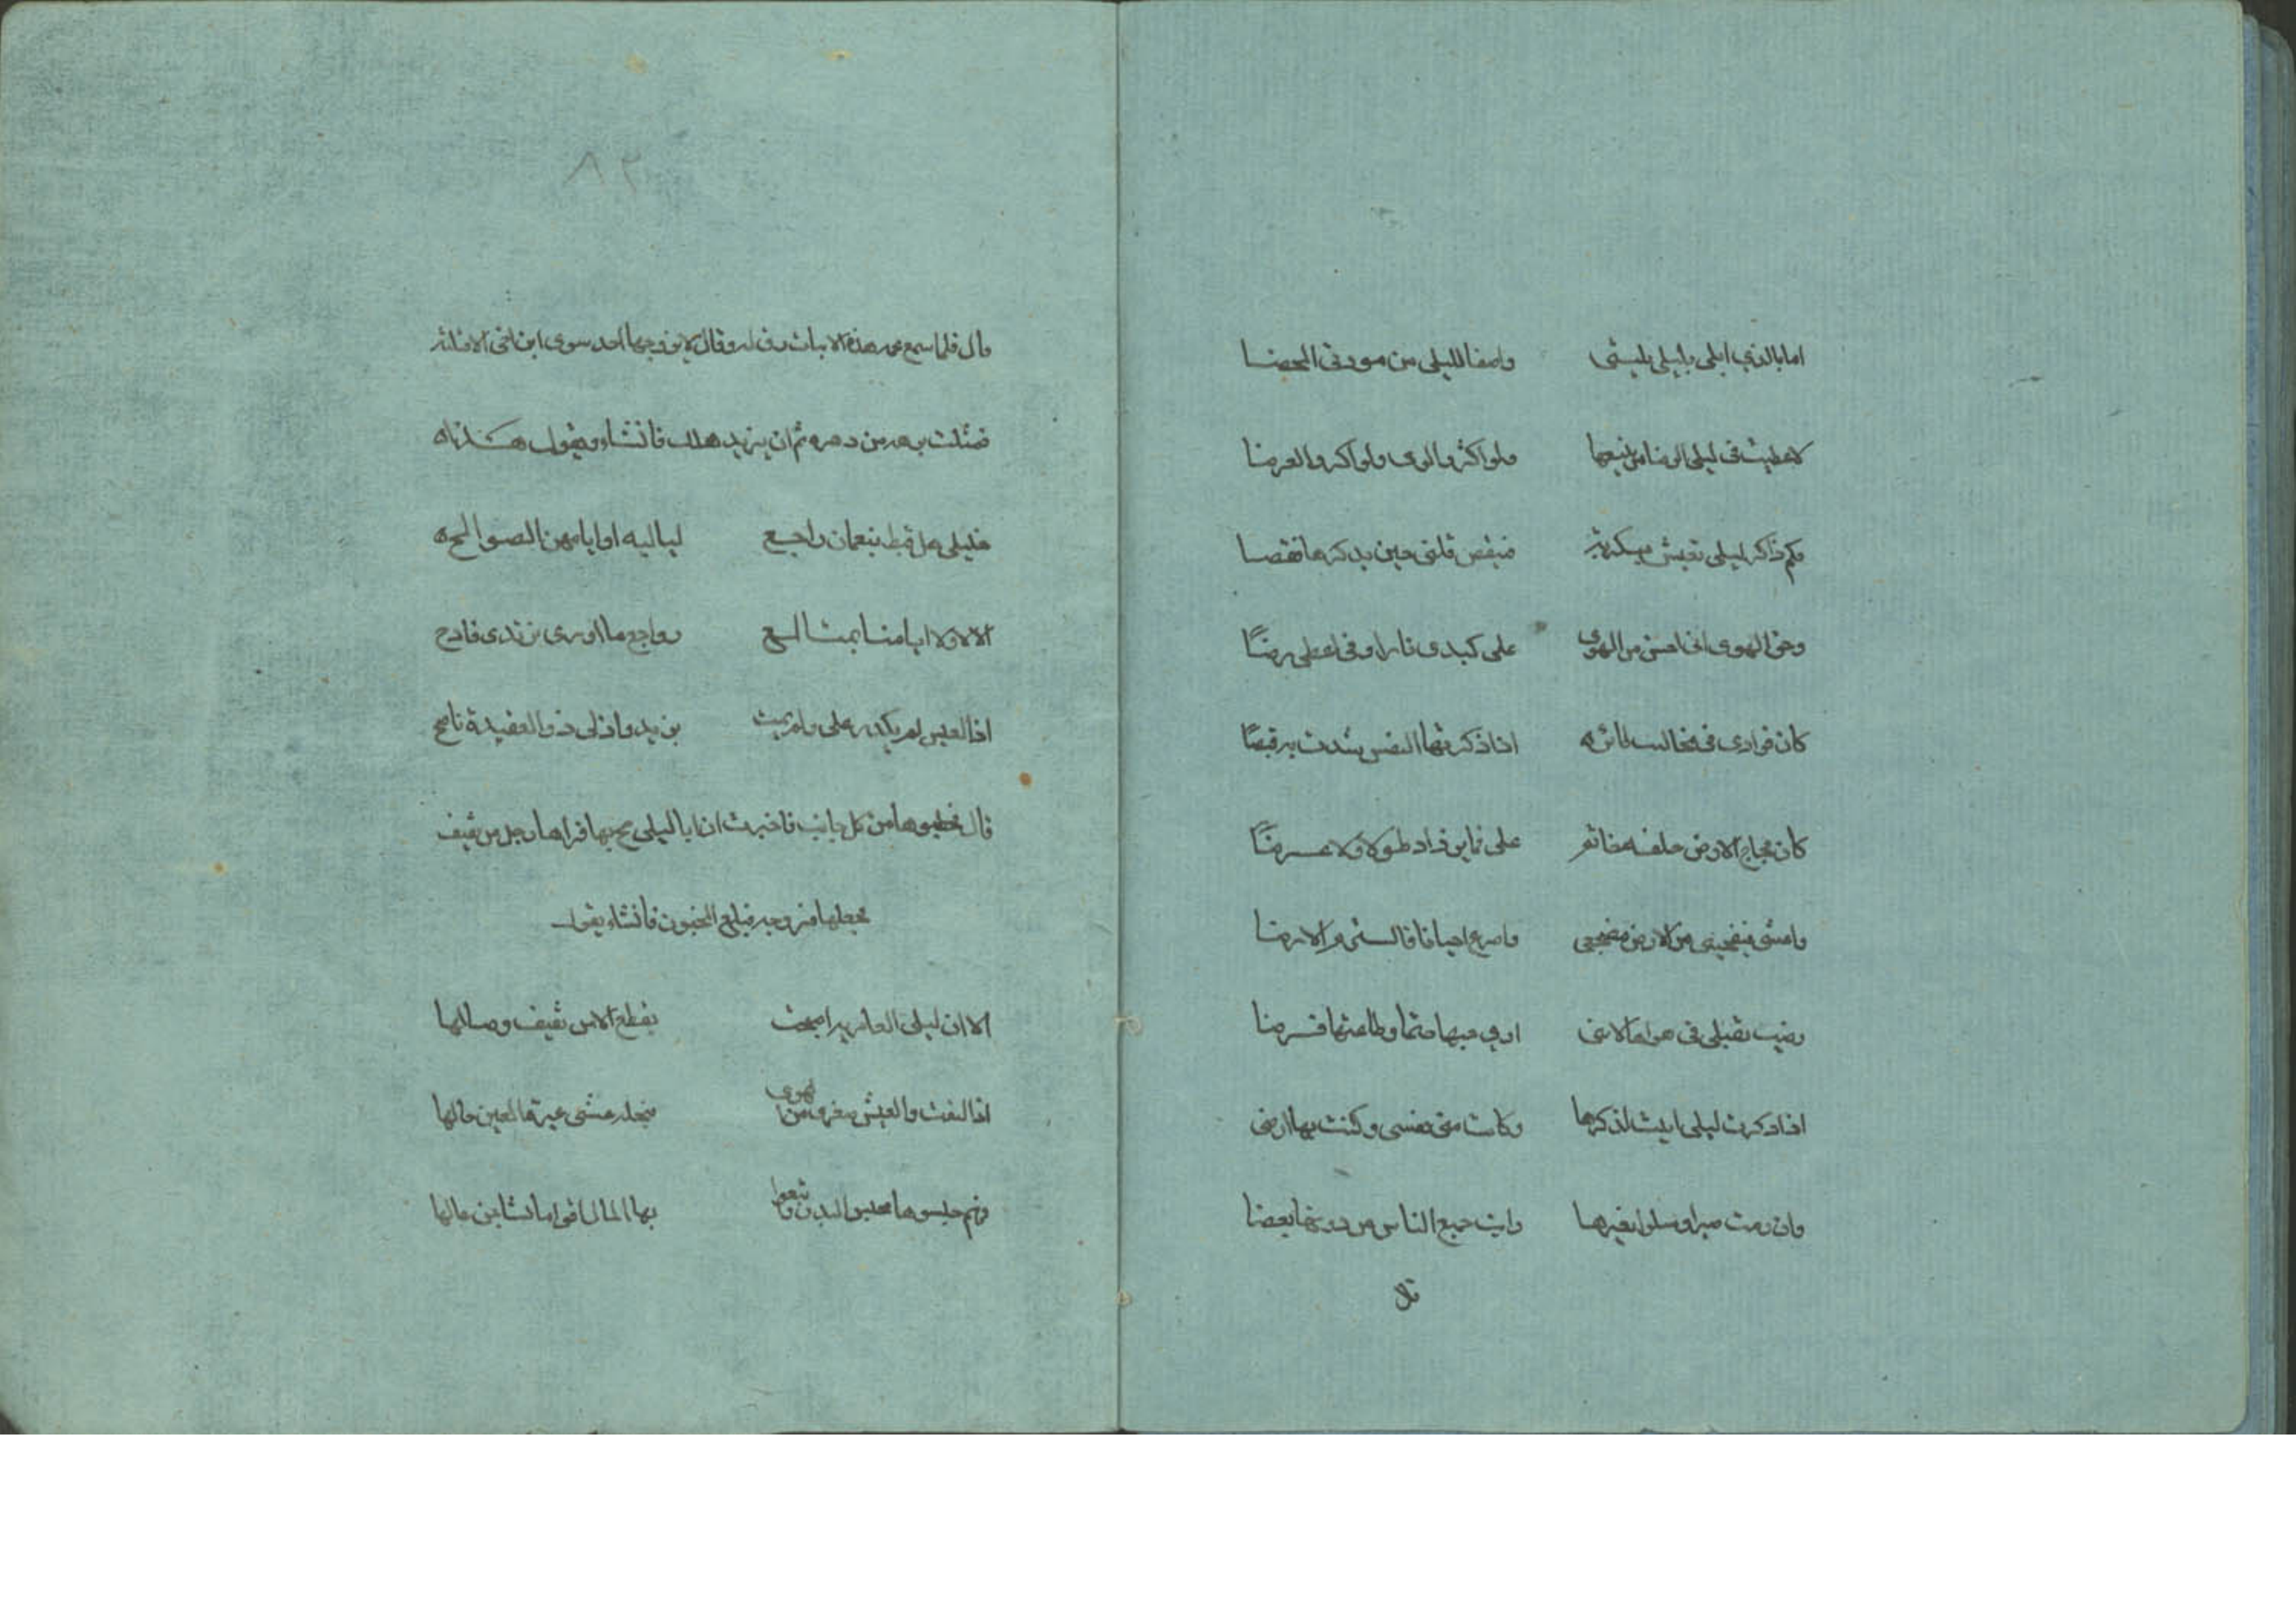 اما بالذي ابلى بليلى بليتى واصفا لليلى من مودتى المحضا
لاعطيت فى ليلى الرضا من يبيعها ولو اكثروا لومى ولو اكثروا القرضا
وكم ذاكر ليلى يعيش بكربة فينفض قلبى حين يذكرها نفضا
وحق الهوى انى احس من الهوى على كبدى نارا وفى اعظمى رضًا
كان فوادى فى مخالب طائر اذا ذكرتها النفس شدت به قبضًا
كان فجاج الارض حلقه خاتم على فما تزداد طولا ولا عرضًا
وامشى من الارض مضجعى واصرع احيانا فالتمس الارضا
رضيت بقتلى فى هواها لاننى ارى حبها حتما وطاعتها فرضا
اذا ذكرت ليلى ابيت لذكرها وكانت منى نفسى وكنت بها ارضى
وان رمت صبرا او سلوا بغيرها رايت جميع الناس من دونها بعضا
قال
٨٢
قال فلما سمع عمه هذه الابيات رق له وقال لا يزوجها احد سوى ابن اخى الا قتلته
فمثلت برهه من دهره ثم ان يزيد هلك فانشاء ويقول هذه
خليلى هل قيظ بنعمان راجع لياليه او ايامهن الصوالحه
الا لا ولا ايامنا بمتالع رواجع ما اورى بزندى قادح
اذا العيس لم يكدر على ولم يمت يزيد واذ لى ذو العقيدة ناصح
قال خطبوها من كل جانب فاخبرت ان ابا ليلى فراها رجل من ثقيف
فزوجه فبلغ المجنون فانشاء يقول
الا ان ليلى العامريه اصبحت تقطع الا من ثقيف وصالها
اذا التفت والعيش من لهوى عبرة العين حالها
وهم حبسوها محبس البدن بها المال اقواما تشا بن مالها